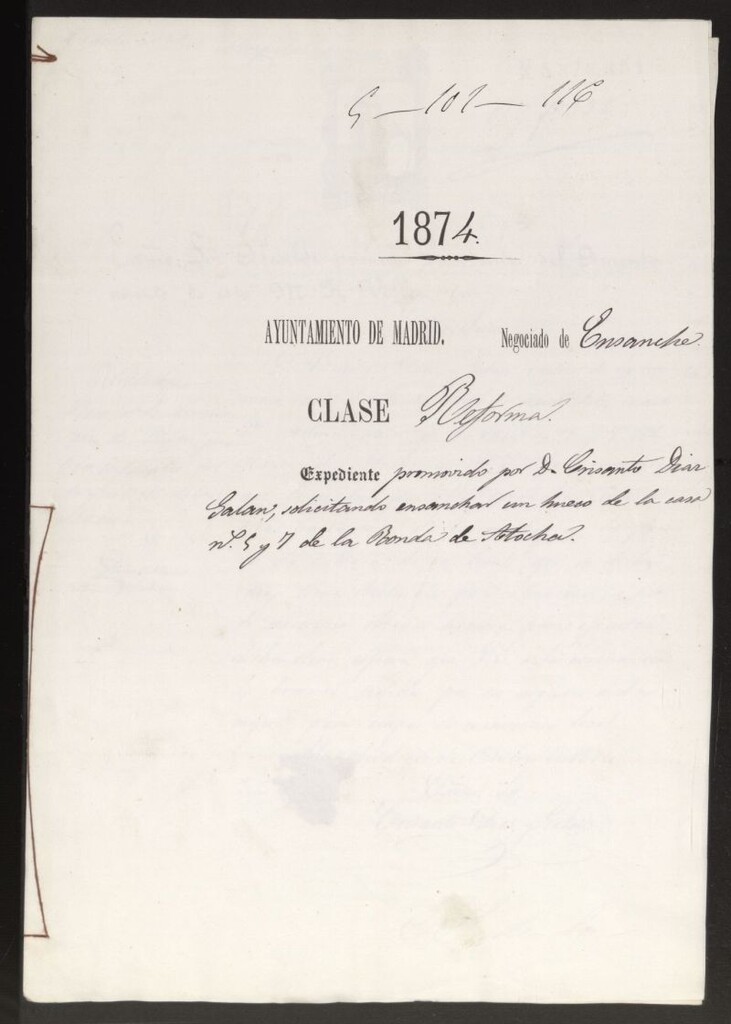 5 — 101 — 116
1874.
AYUNTAMIENTO DE MADRID. Negociado de Ensanche.
CLASE Reforma.
Expediente promovido por D. Crisanto Diaz
Galan, solicitando ensanchar un hueco de la casa
nº. 5 y 7 de la Ronda de Atocha.